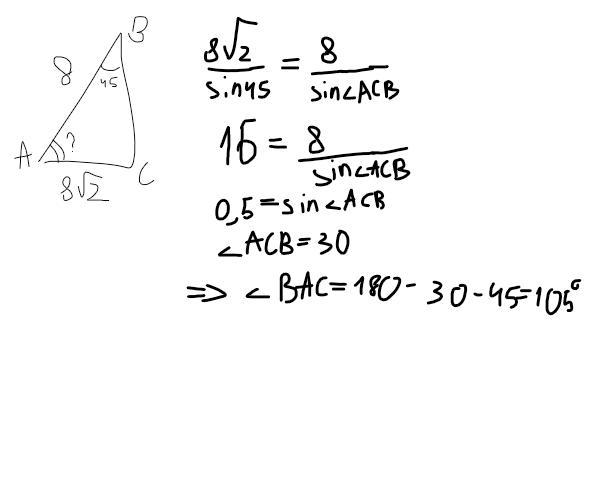 B
8
45
A
?
8√2
C
8√2/sin45 = 8/sin∠ACB
16 = 8/sin∠ACB
0,5=sin∠ACB
∠ACB=30
=> ∠BAC=180-30-45=105°